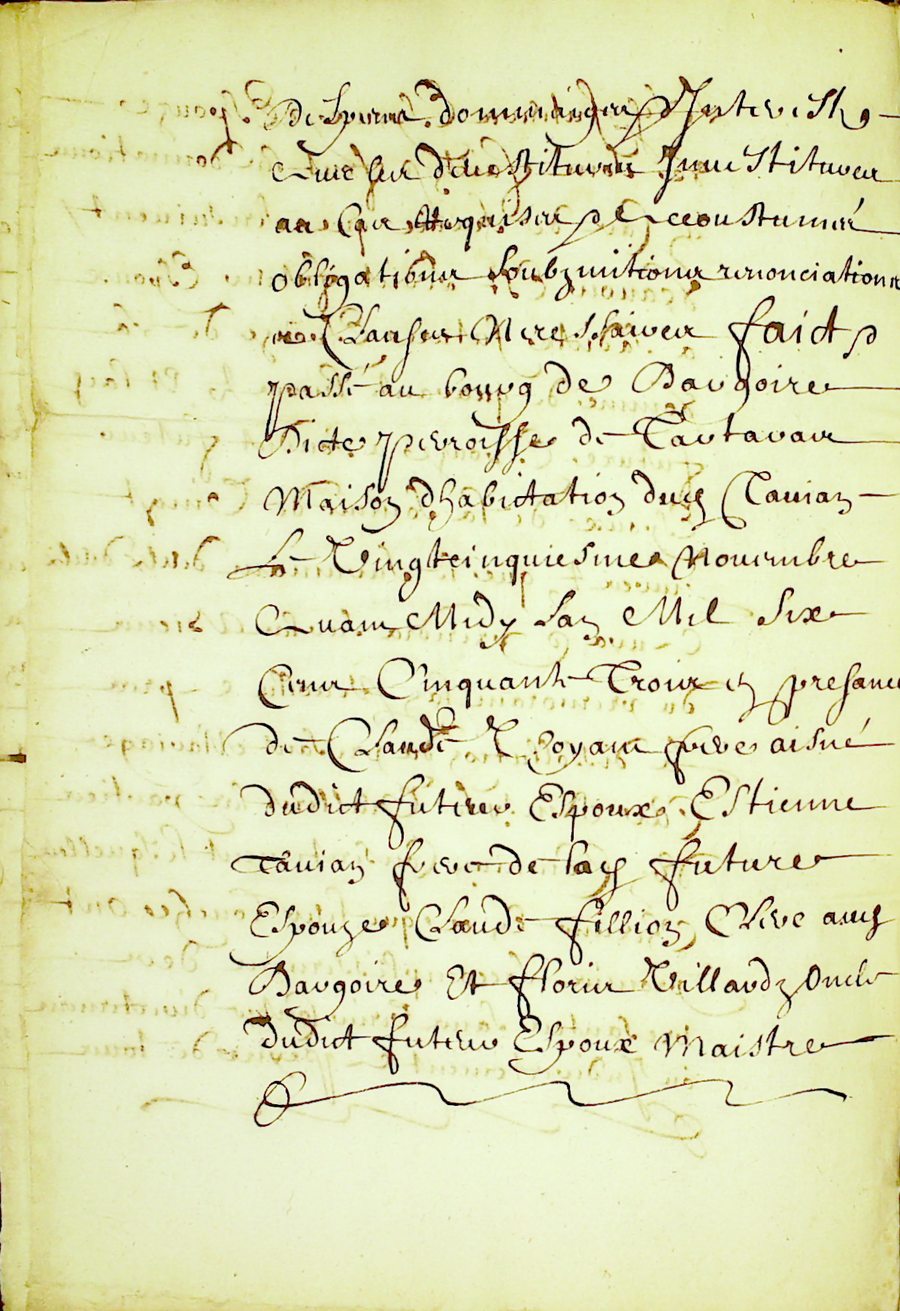 Despens dommaiges & Interestz
au Cas Requises & accoustumés
obligations soubzmitions renonciations
et Clauses Necessaires faict &
passé au bourg de Bargoire
Dicte perroisse de Tartaras
Maison dhabictation dud Tavian
Le Vingtcinquiesme Novembre
Avant Midy Lan Mil Six
Cens Cinquante Trois en presance
de Claude Royaut frere aisné
dudict futeur Espoux Estienne
Tavian frere de lad future
Espouze Claude fillion Clerc aud
Bargoire Et floris Villardz Oncle
dudict futeur Espoux Maistre